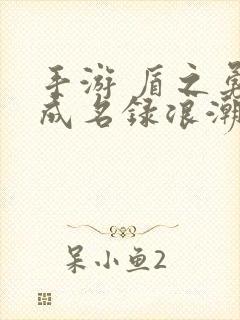 手游 盾之勇
成名录浪潮
呆小鱼2